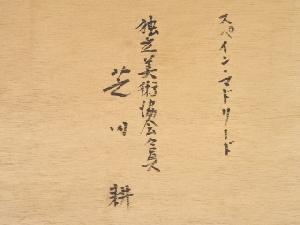 スペインマドリード
独立美術協会会員
芝田耕